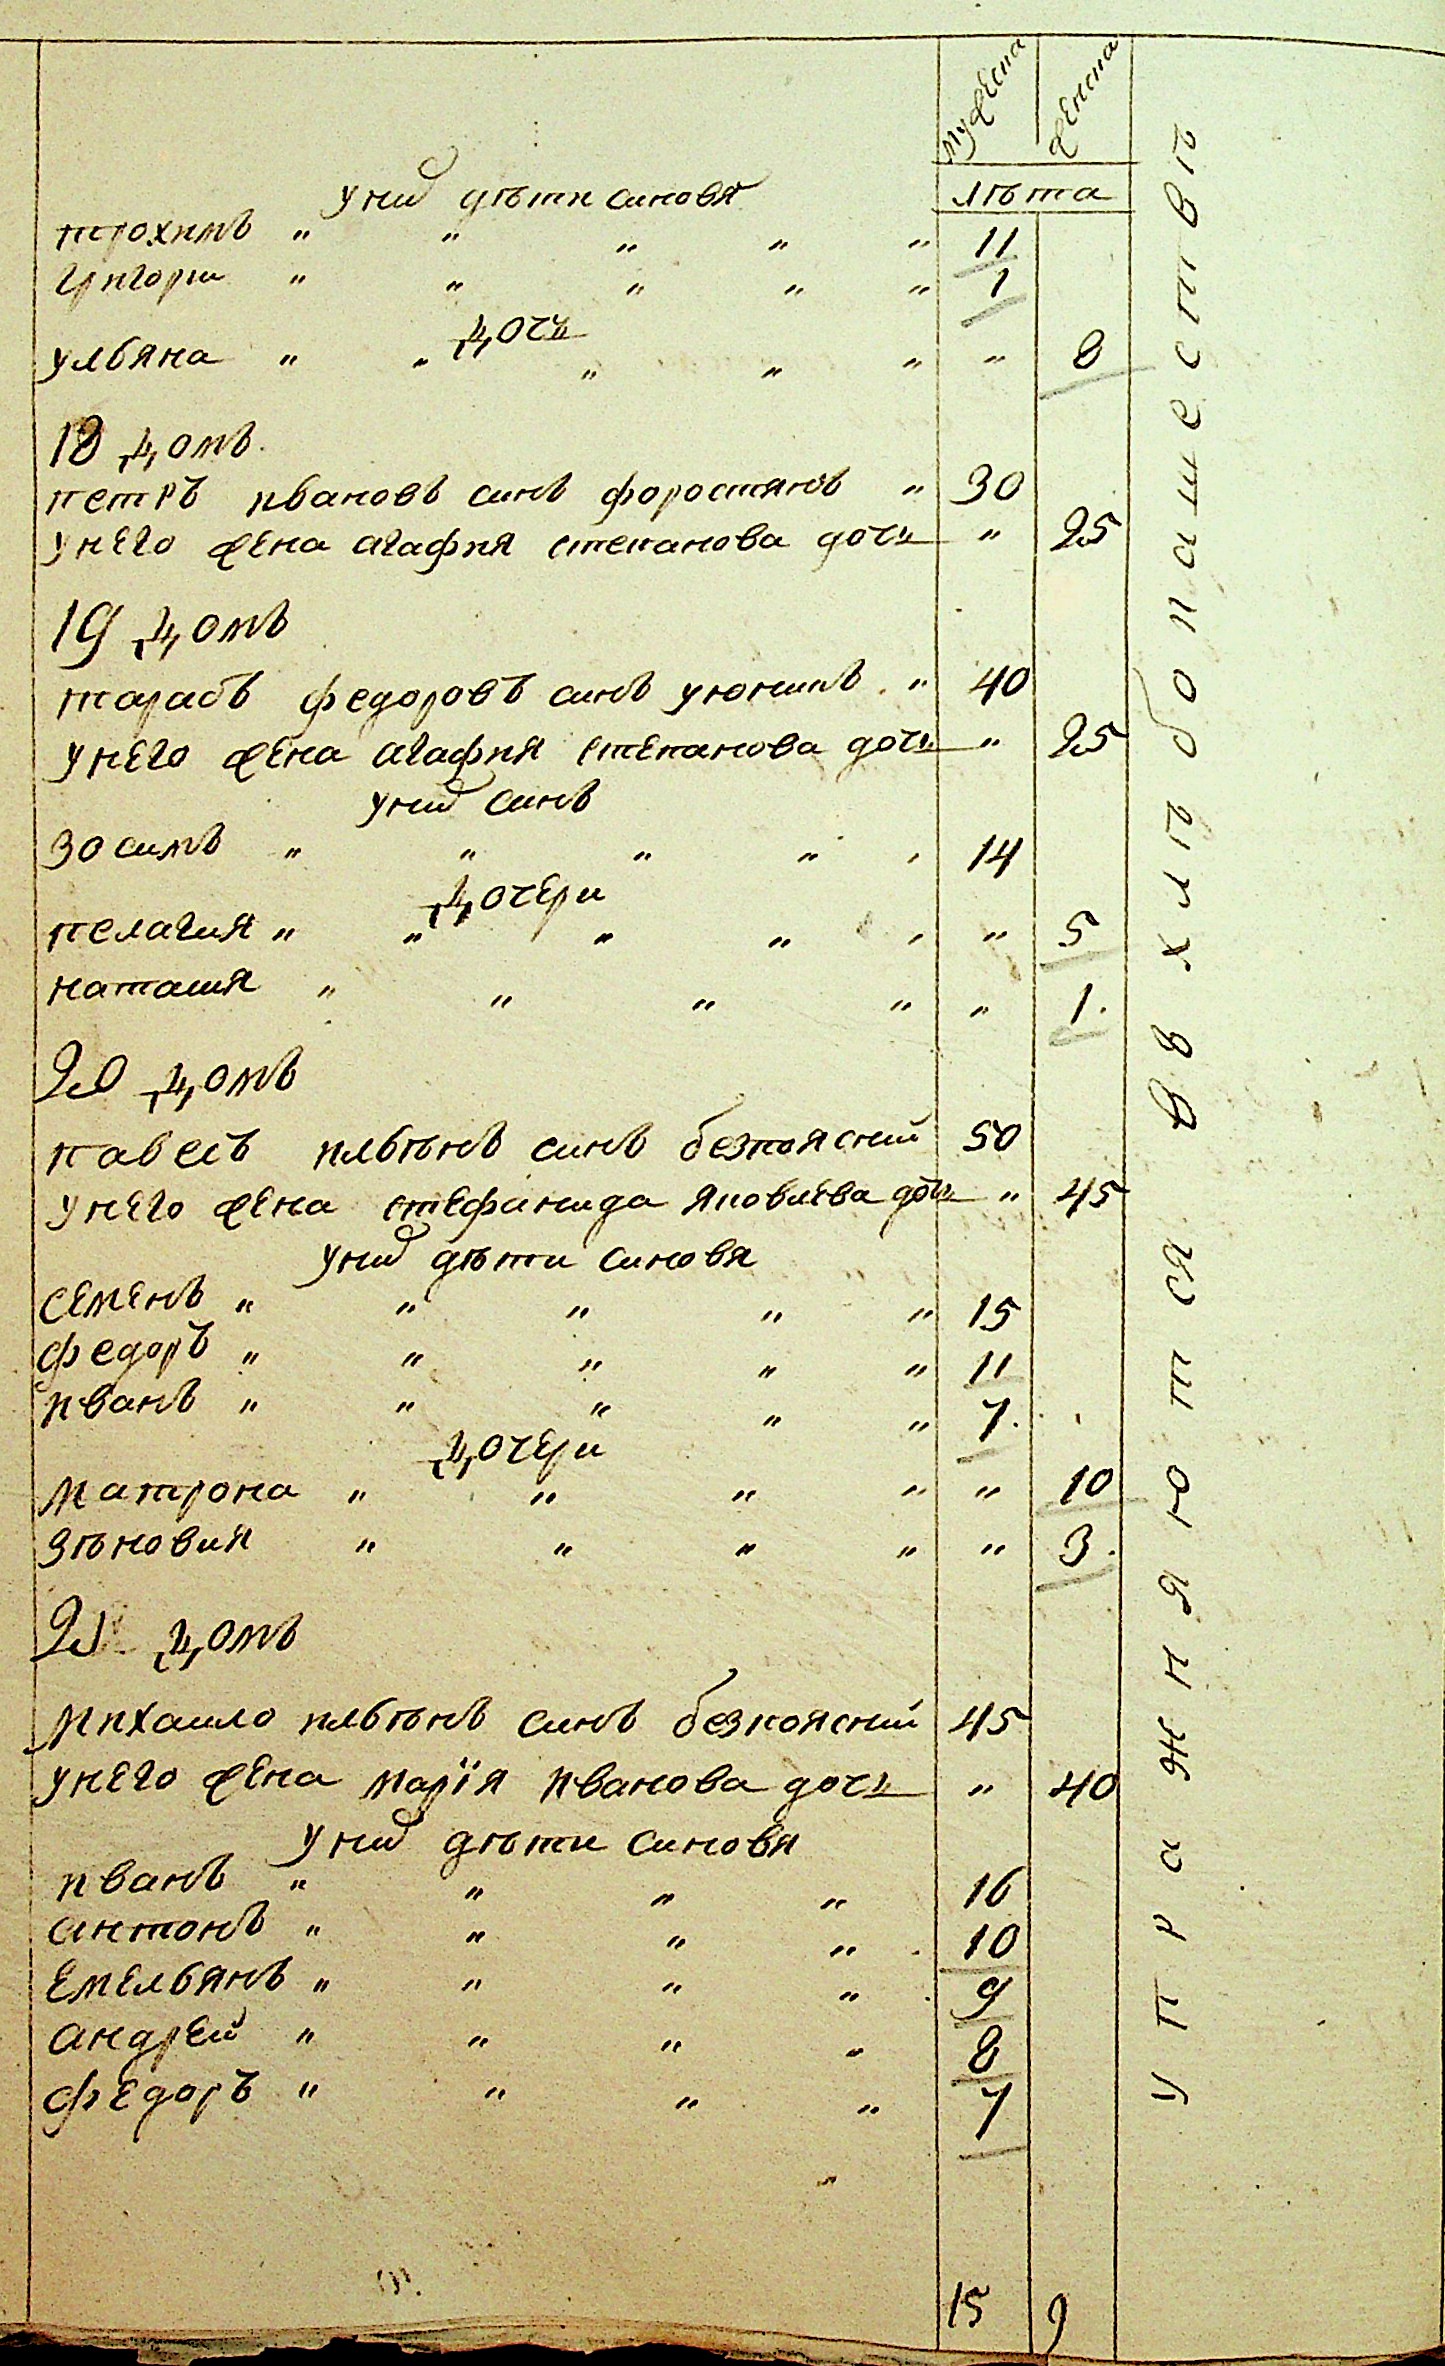 мужеска женска
лѣта
уних дѣти синовя
трохимъ " " " " " 11
Григори " " " " " 1
дочь
улбяна " " " " " " 8
18 домъ.
петръ ивановъ синъ форостянъ " 30
унего жена агафия степанова дочь " 25
19 домъ
тарасъ федоровъ синъ " 40
унего жена агафия степанова дочь " 25
уних синъ
зосимъ " " " " " 14
дочери
пелагия " " " " " " 5
наташия " " " " " 1.
20 домъ
павелъ илбѣнъ синъ безпояский 50
унего жена стефанида яковлева дочь " 45
уних дѣти синовя
семенъ " " " " " 15
федоръ " " " " " 11
иванъ " " " " " 7.
дочери
матрона " " " " " 10
зѣновия " " " " " 3.
21 домъ
михаило илбѣнъ синъ безпояский 45
унего жена марїя иванова дочь " 40
уних дѣти синовя
иванъ " " " " 16
антонъ " " " " 10
емелбянъ " " " " 9
андрей " " " " 8
федоръ " " " " 7
15 9
упражняются въ хлѣбопашествѣ